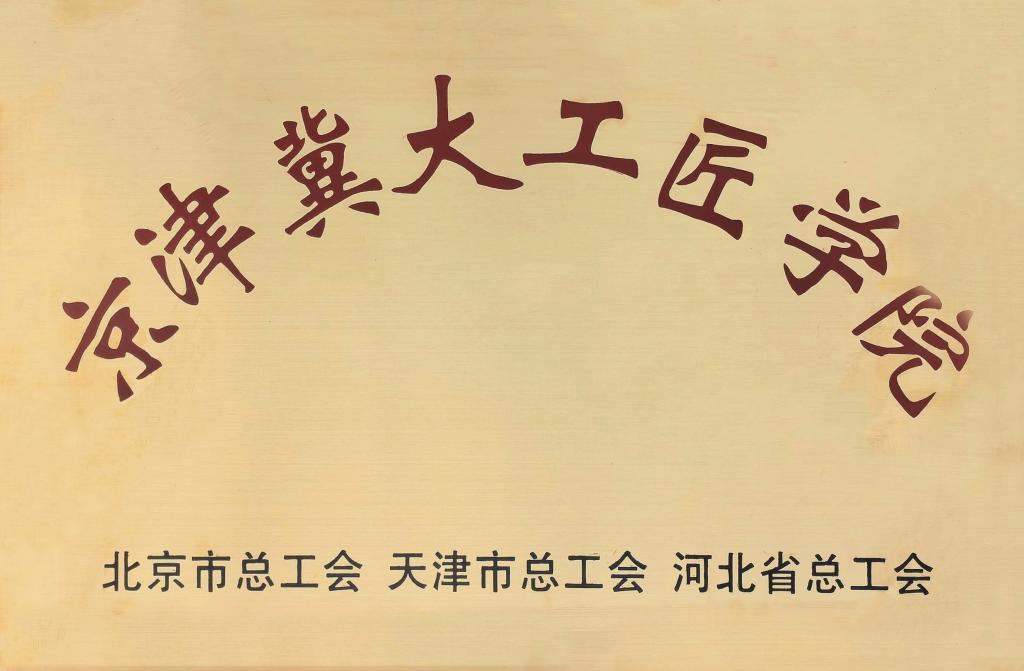 京津冀大工匠学院
北京市总工会 天津市总工会 河北省总工会